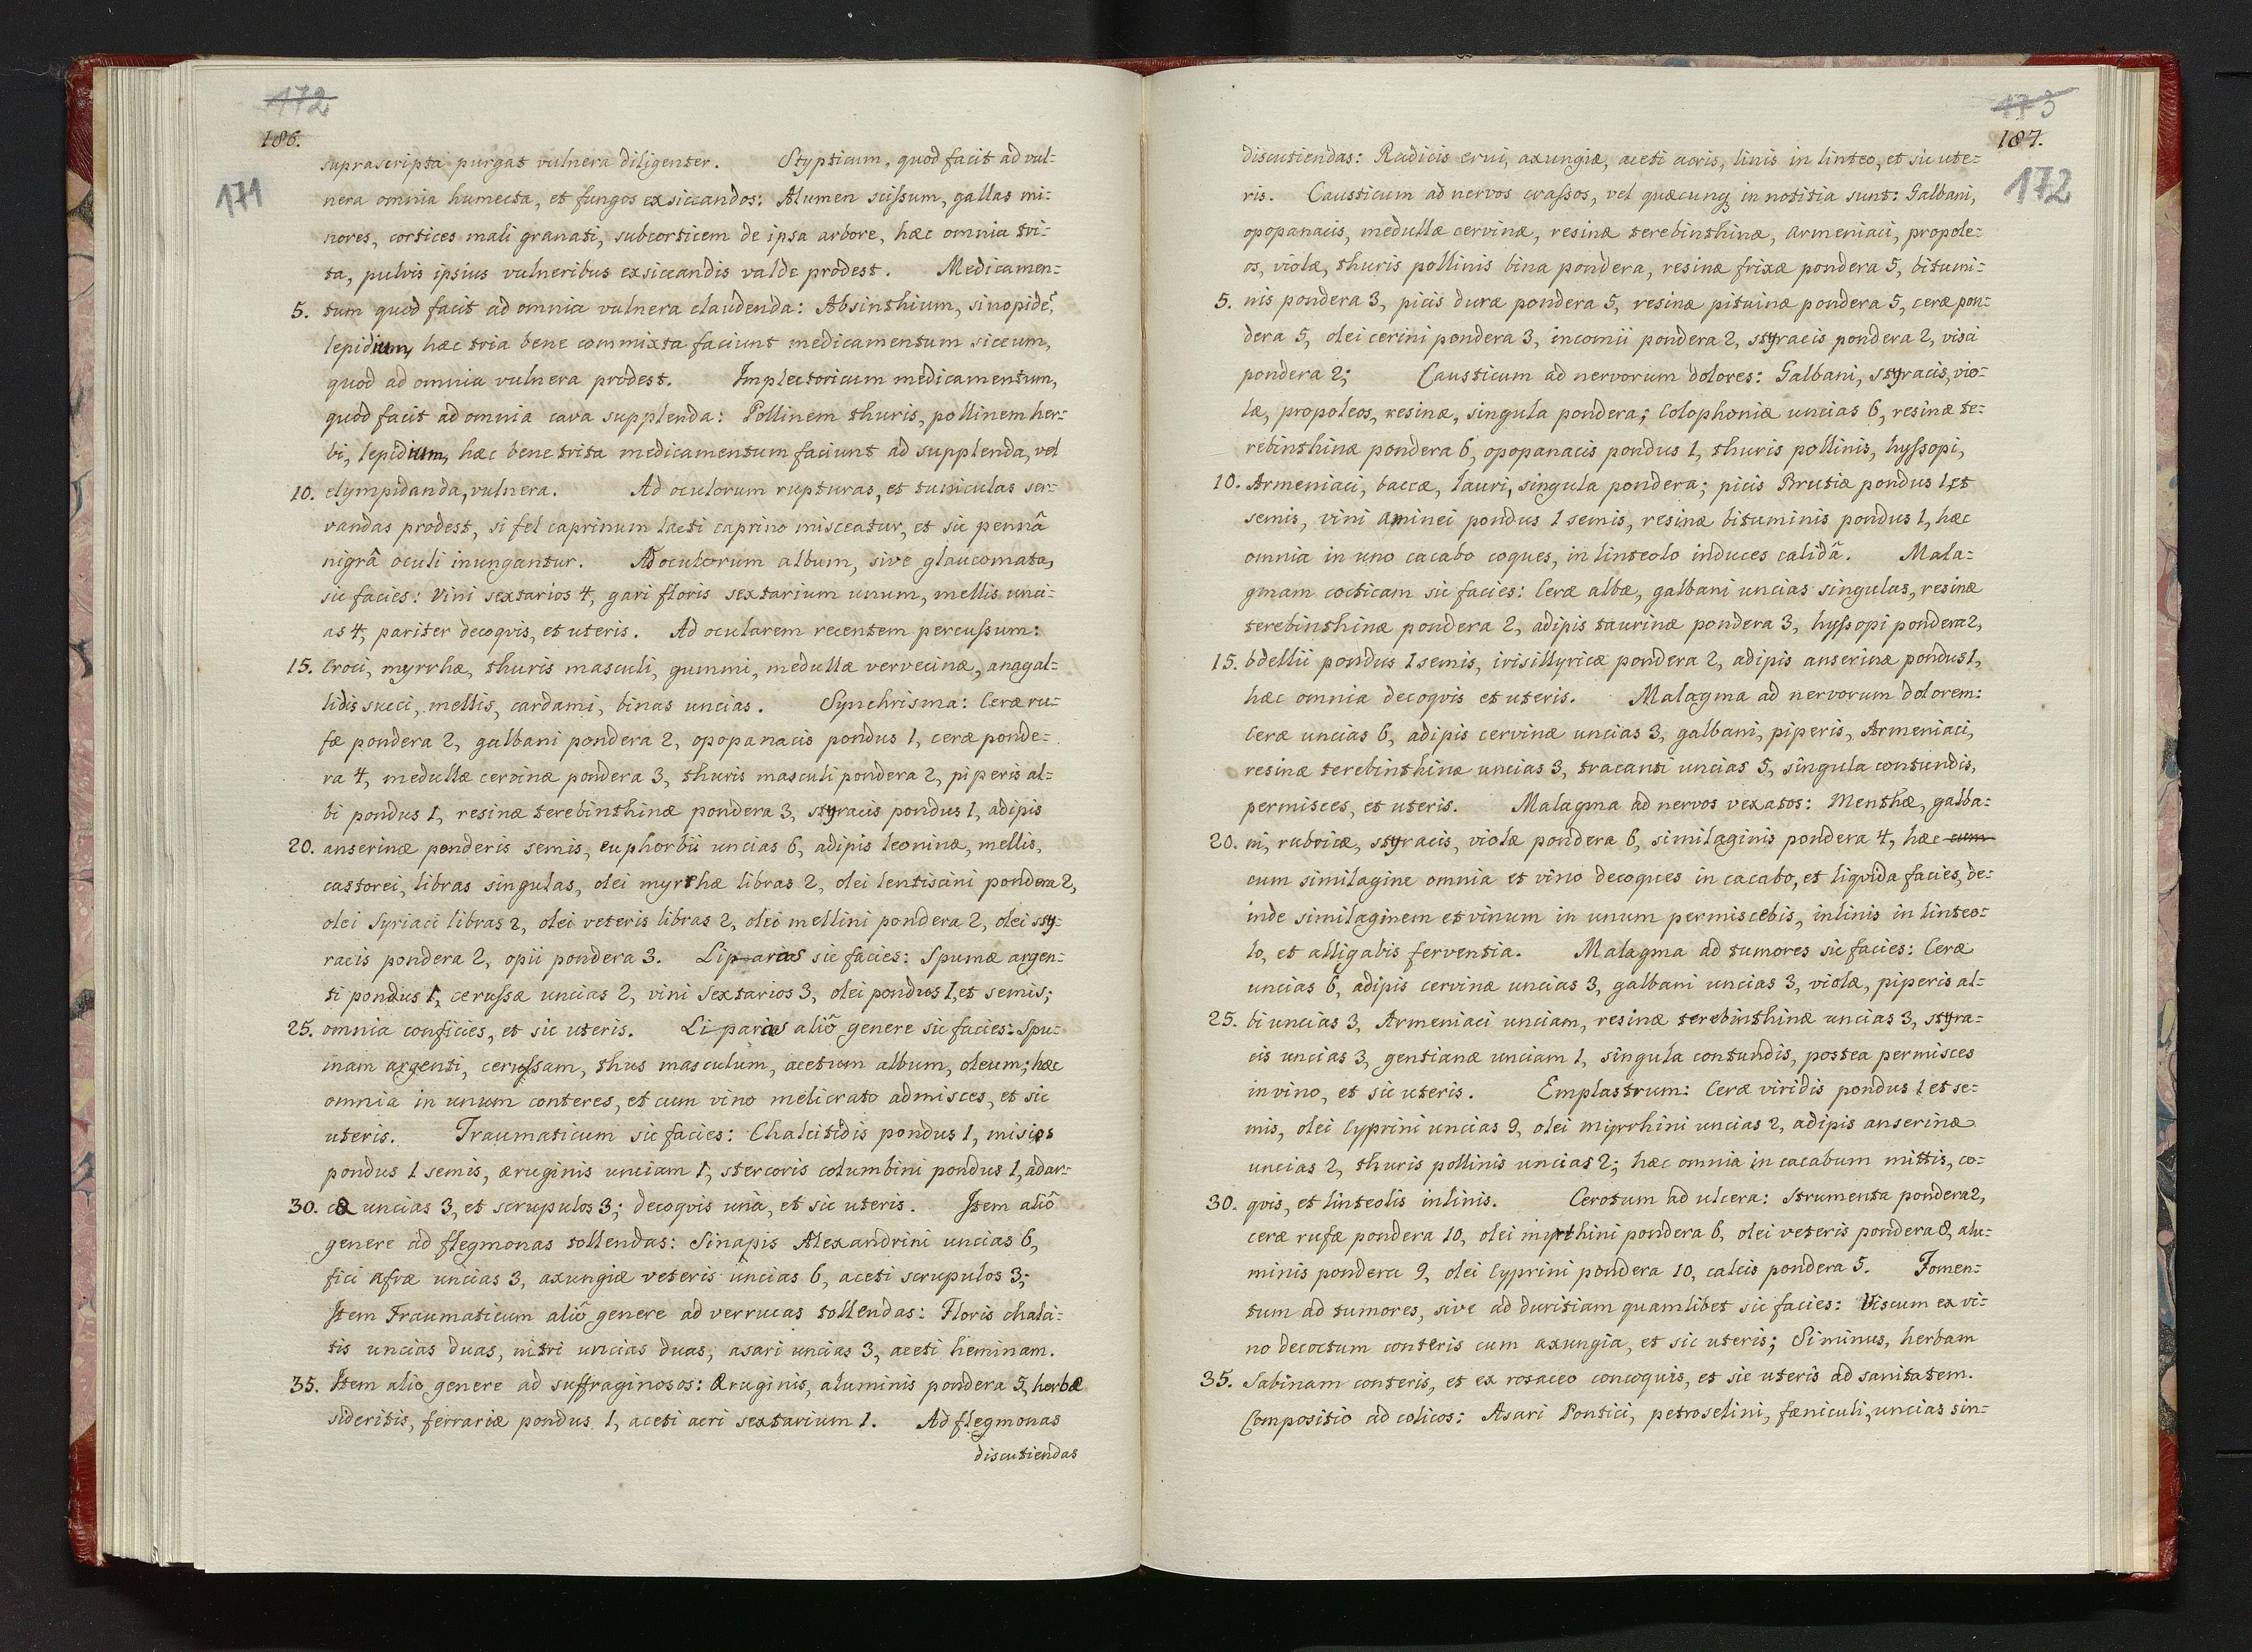 172
186.
171
suprascripta purgat vulnera diligenter. Stypticum, quod facit ad vul=
nera omnia humecta, et fungos exsiccandos: Alumen scissum, gallas mi=
nores, cortices mali granati, subcorticem de ipsa arbore, hæc omnia tri=
ta, pulvis ipsius vulneribus exsiccandis valde prodest. Medicamen=
5. tum quod facit ad omnia vulnera claudenda: Absinthium, sinopidē,
lepidium, hæc tria bene commixta faciunt medicamentum siccum,
quod ad omnia vulnera prodest. Implectoricum medicamentum,
quod facit ad omnia cava supplenda: Pollinem thuris, pollinem her=
bi, lepidium, hæc bene trita medicamentum faciunt ad supplenda, vel
10. elympidanda, vulnera. Ad oculorum rupturas, et tuniculas ser=
vandas prodest, si fel caprinum lacti caprino misceatur, et sic pennâ
nigrâ oculi inungantur. Ad oculorum album, sive glaucomata,
sic facies: Vini sextarios 4, gari floris sextarium unum, mellis unci=
as 4, pariter decoqvis, et uteris. Ad ocularem recentem percussum:
15. Croci, myrrhæ, thuris masculi, gummi, medullæ vervecinæ, anagal=
lidis succi, mellis, cardami, binas uncias. Synchrisma: Ceræ ru=
fæ pondera 2, galbani pondera 2, opopanacis pondus 1, ceræ ponde=
ra 4, medullæ cervinæ pondera 3, thuris masculi pondera 2, piperis al=
bi pondus 1, resinæ terebinthinæ pondera 3, styracis pondus 1, adipis
20. anserinæ ponderis semis, euphorbii uncias 6, adipis leoninæ, mellis,
castorei, libras singulas, olei myrrhæ libras 2, olei lentiscini pondera 2,
olei Syriaci libras 2, olei veteris libras 2, olei mellini pondera 2, olei sty=
racis pondera 2, opii pondera 3. Liparas sic facies: Spumæ argen=
ti pondus 1, cerussæ uncias 2, vini sextarios 3, olei pondus 1, et semis;
25. omnia conficies, et sic uteris. Liparas aliô genere sic facies: Spu=
mam argenti, cerussam, thus masculum, acetum album, oleum; hæc
omnia in unum conteres, et cum vino melicrato admisces, et sic
uteris. Traumaticum sic facies: Chalcitidis pondus 1, misios
pondus 1 semis, æruginis unciam 1, stercoris columbini pondus 1, adar=
30. cæ uncias 3, et scrupulos 3; decoqvis unà, et sic uteris. Item aliô
genere ad flegmonas tollendas: Sinapis Alexandrini uncias 6,
fici afræ uncias 3, axungiæ veteris uncias 6, aceti scrupulos 3;
Item Traumaticum aliô genere ad verrucas tollendas: Floris chalci=
tis uncias duas, nitri uncias duas, asari uncias 3, aceti heminam.
35. Item alio genere ad suffraginosos: Æruginis, aluminis pondera 5, herbæ
sideritis, ferrariæ pondus 1, aceti acri sextarium 1. Ad flegmonas
discutiendas
173
187.
172
discutiendas: Radicis erui, axungiæ, aceti acris, linis in linteo, et sic ute=
ris. Causticum ad nervos crassos, vel quæcunqȝ in notitia sunt: Galbani,
opopanacis, medullæ cervinæ, resinæ terebinthinæ, Armeniaci, propole=
os, violæ, thuris pollinis bina pondera, resinæ frixæ pondera 5, bitumi=
5. nis pondera 3, picis duræ pondera 5, resinæ pituinæ pondera 5, ceræ pon=
dera 5, olei cerini pondera 3, incomii pondera 2, styracis pondera 2, visci
pondera 2; Causticum ad nervorum dolores: Galbani, styracis, vio=
læ, propoleos, resinæ, singula pondera; Colophoniæ uncias 6, resinæ te=
rebinthinæ pondera 6, opopanacis pondus 1, thuris pollinis, hyssopi,
10. Armeniaci, baccæ, lauri, singula pondera; picis Brutiæ pondus 1, et
semis, vini Aminei pondus 1 semis, resinæ bituminis pondus 1, hæc
omnia in uno cacabo coques, in linteolo induces calidâ. Mala=
gmam cocticam sic facies: Ceræ albæ, galbani uncias singulas, resinæ
terebinthinæ pondera 2, adipis taurinæ pondera 3, hyssopi pondera 2,
15. bdellii pondus 1 semis, iris illyricæ pondera 2, adipis anserinæ pondus 1,
hæc omnia decoqvis et uteris. Malagma ad nervorum dolorem:
Ceræ uncias 6, adipis cervinæ uncias 3, galbani, piperis, Armeniaci,
resinæ terebinthinæ uncias 3, tracanti uncias 5, singula contundis,
permisces, et uteris. Malagma ad nervos vexatos: Menthæ, galba=
20. ni, rubricæ, styracis, violæ pondera 6, similaginis pondera 4, hæc cum
cum similagine omnia et vino decoques in cacabo, et liqvida facies, de=
inde similaginem et vinum in unum permiscebis, inlinis in linteo=
lo, et alligabis ferventia. Malagma ad tumores sic facies: Ceræ
uncias 6, adipis cervinæ uncias 3, galbani uncias 3, violæ, piperis al=
25. bi uncias 3, Armeniaci unciam, resinæ terebinthinæ uncias 3, styra=
cis uncias 3, gentianæ unciam 1, singula contundis, postea permisces
in vino, et sic uteris. Emplastrum: Ceræ viridis pondus 1 et se=
mis, olei Cyprini uncias 9, olei myrrhini uncias 2, adipis anserinæ
uncias 2, thuris pollinis uncias 2; hæc omnia in cacabum mittis, co=
30. qvis, et linteolis inlinis. Cerotum ad ulcera: Strumenta pondera 2,
ceræ rufæ pondera 10, olei myrthini pondera 6, olei veteris pondera 8, alu=
minis pondera 9, olei Cyprini pondera 10, calcis pondera 5. Fomen=
tum ad tumores, sive ad duritiam quamlibet sic facies: Viscum ex vi=
no decoctum conteris cum axungia, et sic uteris; Siminus, herbam
35. Sabinam conteris, et ex rosaceo concoquis, et sic uteris ad sanitatem.
Compositio ad colicos: Asari Pontici, petroselini, fæniculi, uncias sin=